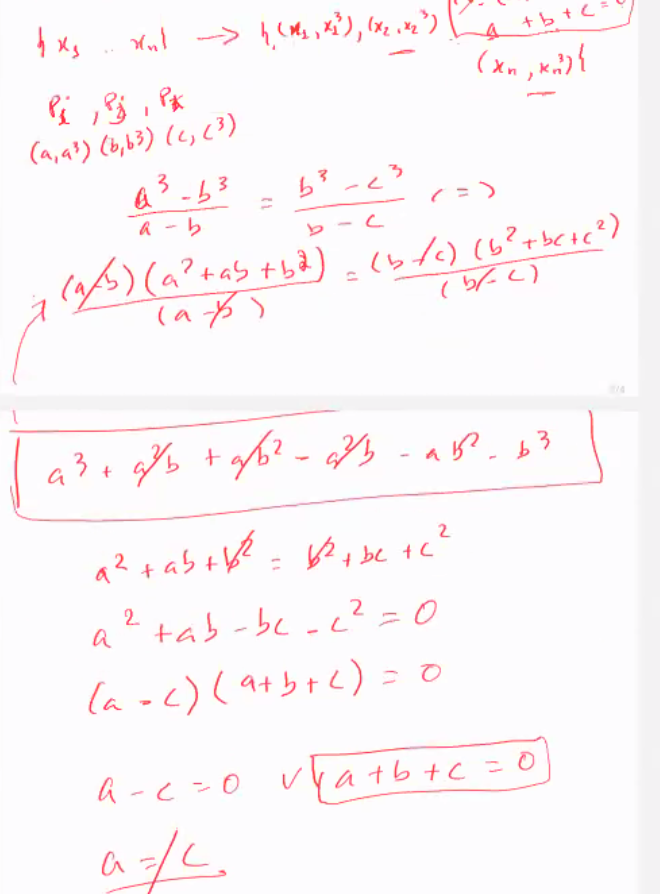 { x₁ .. xₙ } → { (x₁, x₁³), (x₂, x₂³)
a + b + c = 0
(xₙ, xₙ³) }
Pᵢ , Pⱼ , Pₖ
(a, a³) (b, b³) (c, c³)
(a³ - b³)/(a - b) = (b³ - c³)/(b - c) <=>
(a-b)(a² + ab + b²)/(a - b) = (b-c)(b² + bc + c²)/(b - c)
a³ + a²b + ab² - a²b - ab² - b³
a² + ab + b² = b² + bc + c²
a² + ab - bc - c² = 0
(a - c)(a + b + c) = 0
a - c = 0 ∨ a + b + c = 0
a ≠ c